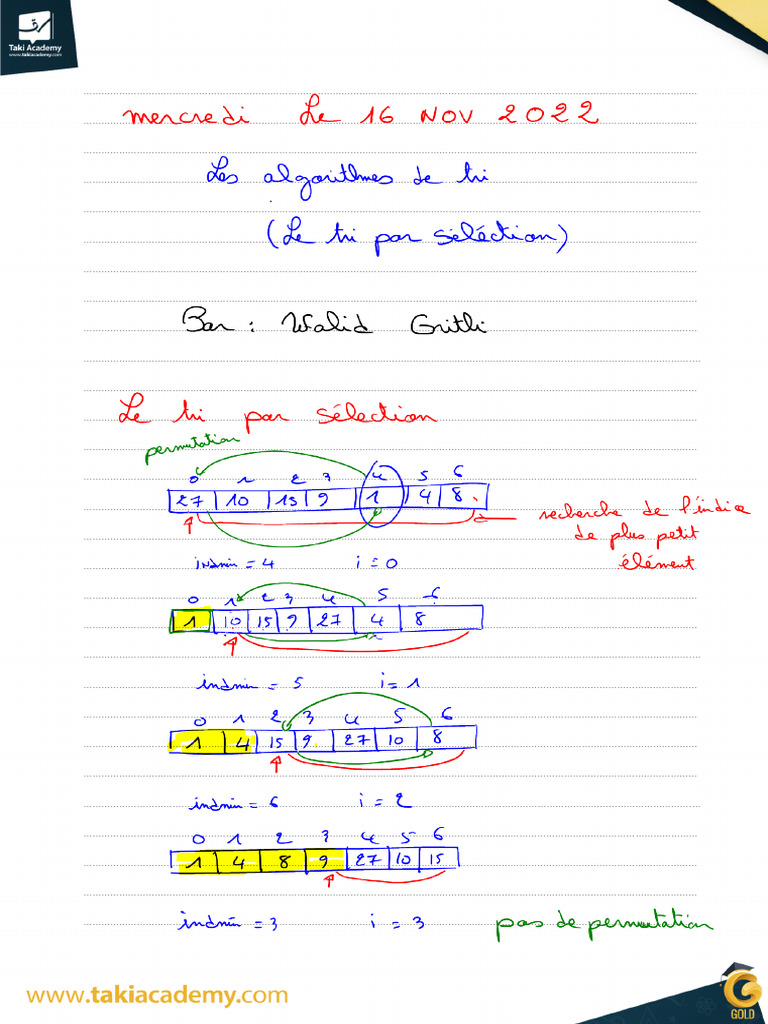 Taki Academy
www.takiacademy.com
mercredi Le 16 NOV 2022
Les algorithmes de tri
(Le tri par séléction)
Bar : Walid Grithi
Le tri par sélection
permutation
0 1 2 3 4 5 6
27 10 15 9 1 4 8
recherche de l'indice
de plus petit
élément
indmin = 4 i = 0
0 1 2 3 4 5 6
1 10 15 9 27 4 8
indmin = 5 i = 1
0 1 2 3 4 5 6
1 4 15 9 27 10 8
indmin = 6 i = 2
0 1 2 3 4 5 6
1 4 8 9 27 10 15
indmin = 3 i = 3 pas de permutation
www.takiacademy.com
GOLD